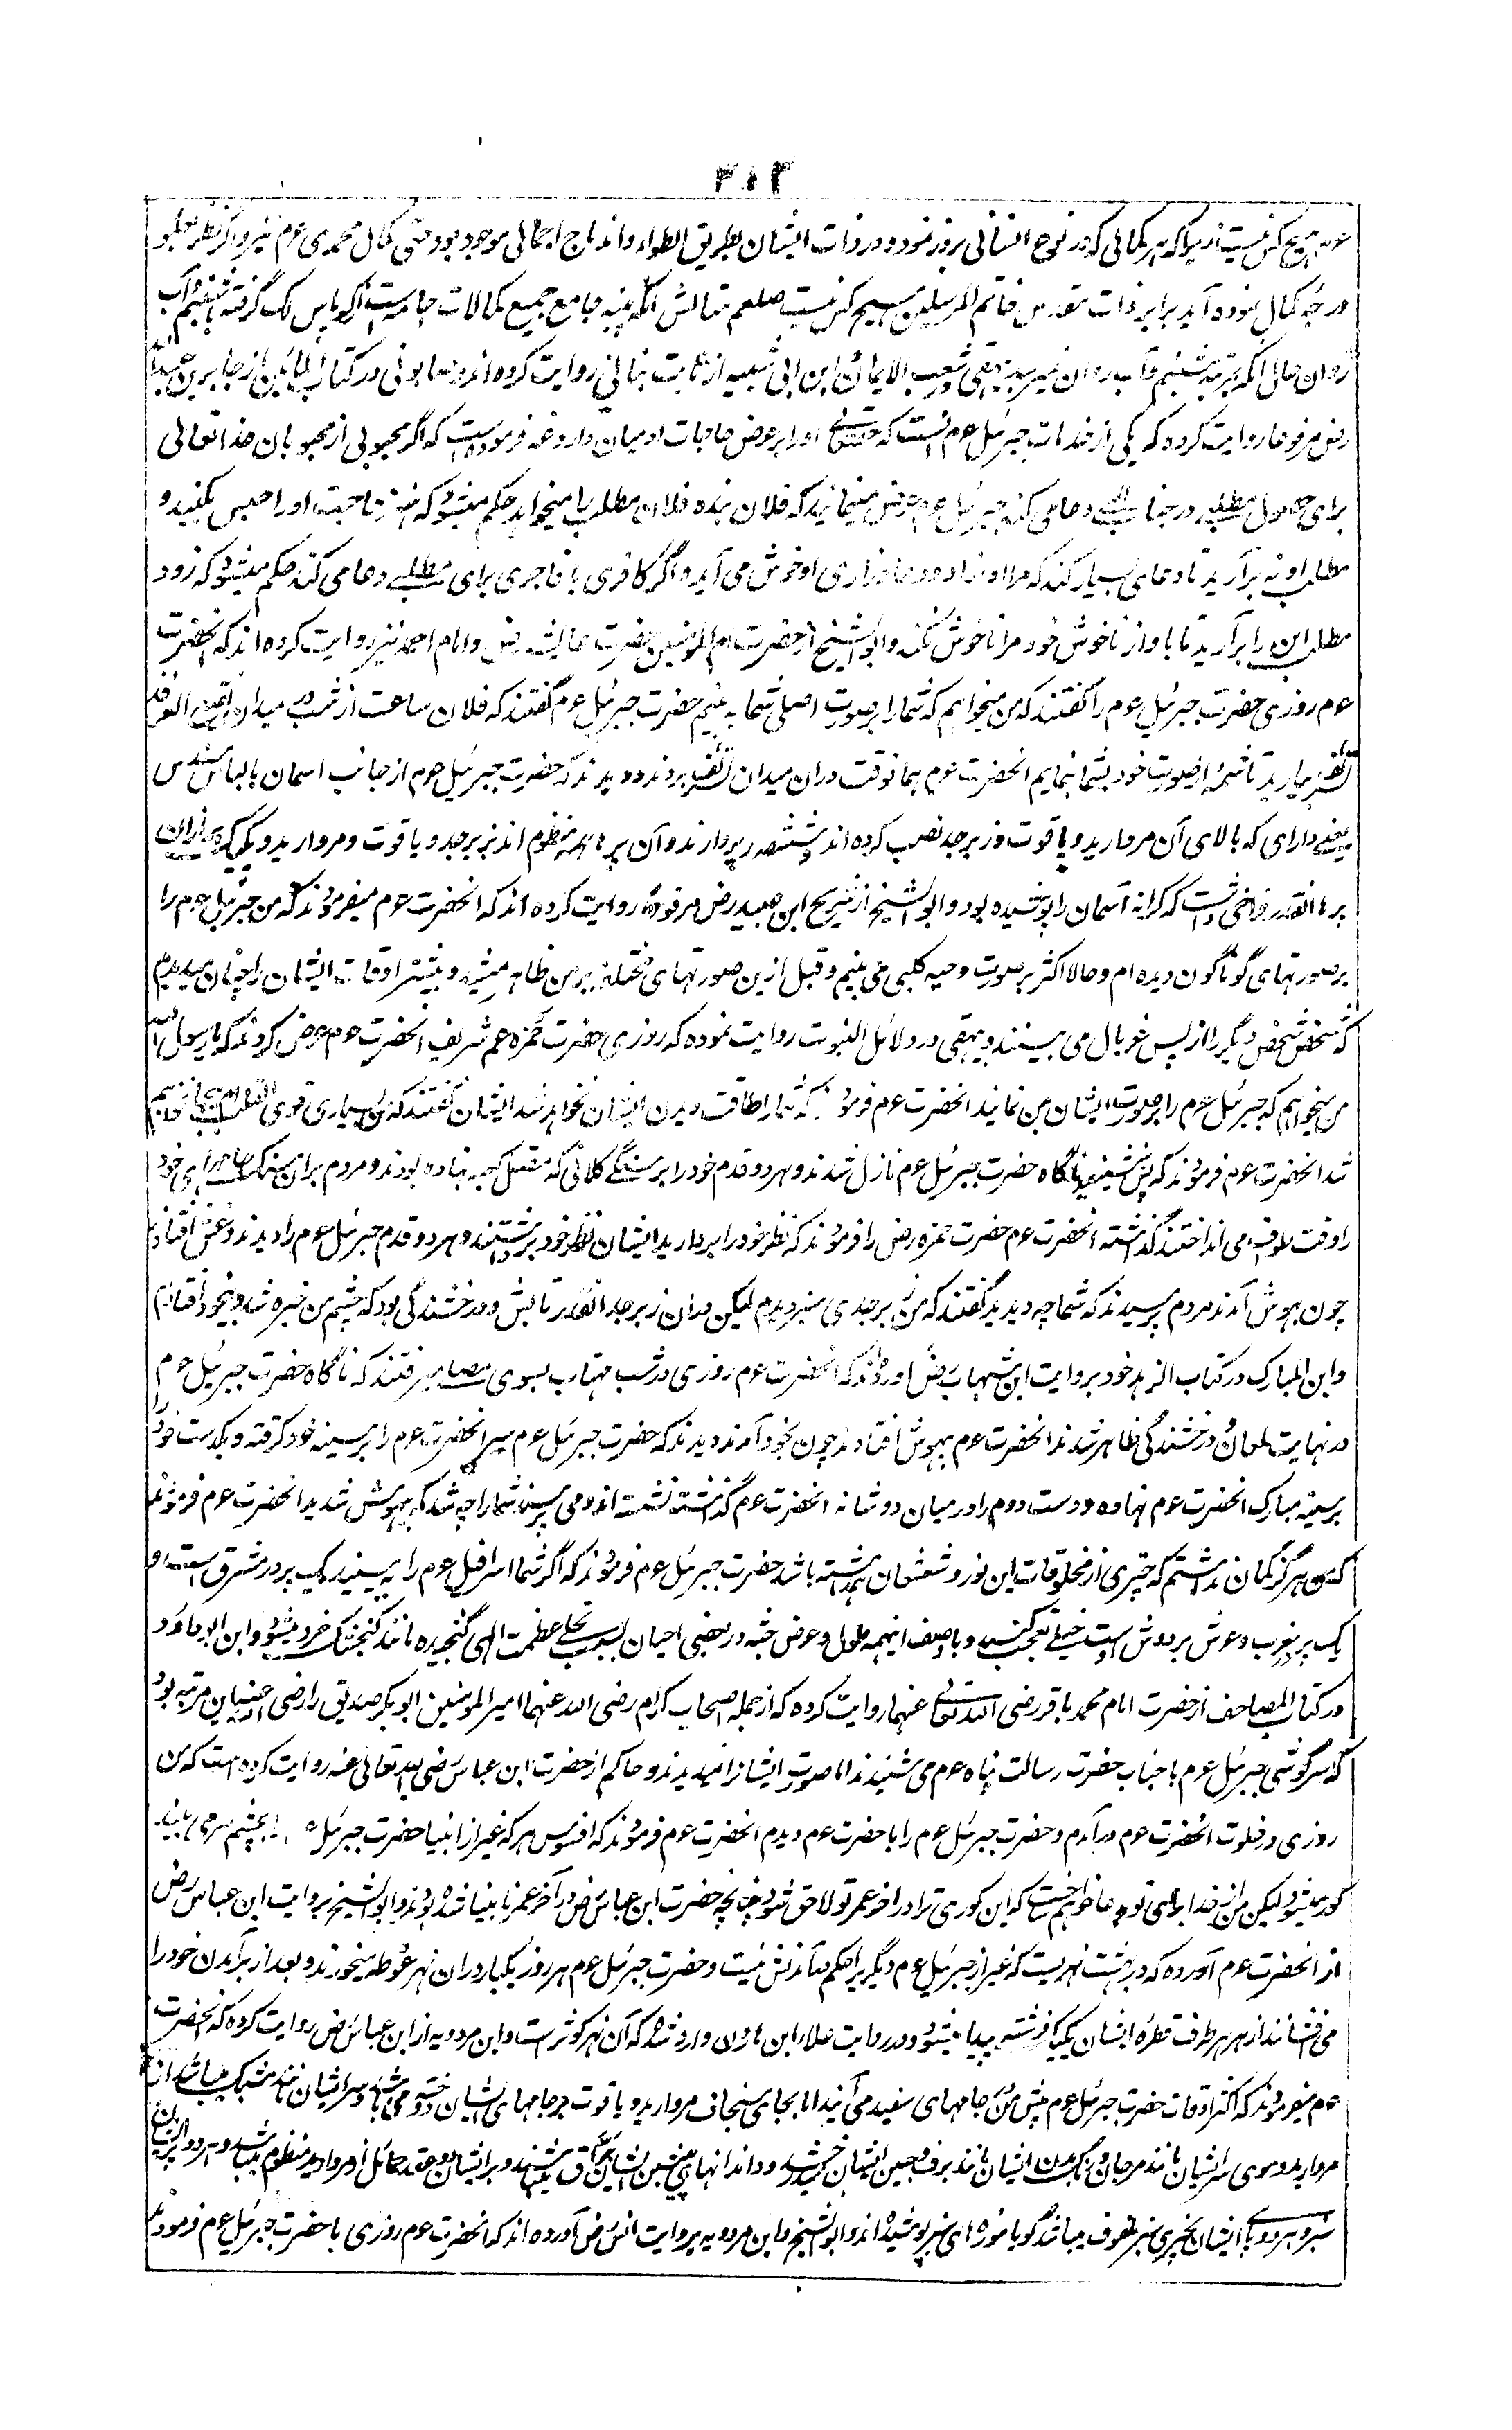 ۳۰۳
عدد هیچ کس نیست زیراکه هر کمالی که در نوع انسانی بروز نمود در ذات ایشان بطریق انطواء و اندماج اجمالی موجود بود حتی کمال محمدی عوم نیز و اگر بنظر
درجه کمال نموده آید برابر ذات مقدس خاتم المرسلین هیچکس نیست صلعم مثالش آنکه پنبه جامع جمیع کمالات جامه است
روان حالا آنکه بمرتبه شبنم و آب روان نمیرسد بیهقی در شعب الایمان و ابن ابی شیبه از ثابت بنانی روایت کرده اند و صابونی در کتاب المأتین از جابر بن عبدالله
رض مرفوعا روایت کرده که یکی از خدمات جبرئیل عوم آنست که حقتعالی او را بر عرض حاجات آدمیان داروغه فرموده است که اگر محبوبی از محبوبان خدا تعالی
برای حصول مطلبی در جناب الهی دعا می کند جبرئیل عوم عرض مینماید که فلان بنده فلان مطلب را میخواهد حکم میشود که هنوز حاجت او را حبس بکنید و
مطلب او نه برآرید تا دعای بسیار کند که مرا دعا و زاری او خوش می آید و اگر کافری یا فاجری برای مطلبی دعا می کند حکم میشود که زود
مطلب این را برآرید تا باواز ناخوش خود مرا ناخوش نکند و ابوالشیخ از حضرت ام المومنین حضرت عائشه رض و امام احمد نیز روایت کرده اند که آنحضرت
عوم روزی حضرت جبرئیل عوم را گفتند که من میخواهم که شما را بصورت اصلی شما به بینم حضرت جبرئیل عوم گفتند که فلان ساعت از شب در میدان بقیع الغرقد
تشریف بیارید تا شمه از صورت خود بشما بنمایم آنحضرت عوم همانوقت دران میدان تشریف بردند و دیدند که حضرت جبرئیل عوم از جانب آسمان بالباس سندس
یعنی دارای که بالای آن مروارید و یاقوت و زبرجد نصب کرده اند و ششصد پر دارند و آن پرها همه منظوم اند بزبرجد و یاقوت و مروارید و یک یک پر ازان
پرها آنقدر فراخی داشت که کرانه آسمان را پوشیده بود و ابوالشیخ از شریح ابن عبید رض مرفوعا روایت کرده اند که آنحضرت عوم میفرمودند که من جبرئیل عوم را
بر صورتهای گوناگون دیده ام و حالا اکثر بر صورت دحیه کلبی می بینم و قبل ازین صورتهای مختلفه بر من ظاهر میشد و بیشتر اوقات ایشان را چنان میدیدم
که شخص شخص دیگر را از پس غربال می بیند و بیهقی در دلائل النبوت روایت نموده که روزی حضرت حمزه عم شریف آنحضرت عوم عرض کردند که یا رسول الله
من میخواهم که جبرئیل عوم را بصورت ایشان بمن نمایند آنحضرت عوم فرمودند که شما را طاقت دیدن ایشان نخواهد شد ایشان گفتند که من بسیاری قوی القلب
شد آنحضرت عوم فرمودند که پس بنشینید ناگاه حضرت جبرئیل عوم نازل شدند و هر دو قدم خود را بر سنگی کلانی که متصل کعبه نهاده بودند و مردم بران سنگ جامهای خود
را وقت طواف می انداختند گذاشته آنحضرت عوم حضرت حمزه رض را فرمودند که نظر خود را بردارید ایشان نظر خود برداشتند و هر دو قدم جبرئیل عوم را دیدند و غش افتادند
چون بهوش آمدند مردم پرسیدند که شما چه دیدید گفتند که من زبرجدی سبز دیدم لیکن دران زبرجد آنقدر تابش و درخشندگی بود که چشم من خیره شد و بیخود افتادم
و ابن المبارک در کتاب الزهد خود بروایت ابن شهاب رض آورده اند که آنحضرت عوم روزی در شب مهتاب بسوی مصلا میرفتند که ناگاه حضرت جبرئیل عوم
در نهایت لمعان و درخشندگی ظاهر شدند آنحضرت عوم بیهوش افتادند چون بخود آمدند دیدند که حضرت جبرئیل عوم سر آنحضرت عوم را بر سینه خود گرفته و یکدست خود را
بر سینه مبارک آنحضرت عوم نهاده و دست دوم را در میان دو شانه آنحضرت عوم گذاشته نشسته اند و می پرسند شما را چه شد که بیهوش شدید آنحضرت عوم فرمودند
که من هرگز گمان نداشتم که چیزی از مخلوقات این نور و شعشعان داشته باشد حضرت جبرئیل عوم فرمودند که اگر شما اسرافیل عوم را به بینید یک پر در مشرق است و
یک پر در مغرب و عرش بر دوش اوست خیلی تعجب کنید و باوصف اینهمه طول و عرض جثه در بعضی احیان بسبب تجلی عظمت الهی گنجیده مانند گنجشک خرد میشود و ابن ابی داود
در کتاب المصاحف از حضرت امام محمد باقر رضی الله تعالی عنهما روایت کرده که از جمله اصحاب کرام رضی الله عنهما امیر المومنین ابوبکر صدیق را رضی الله عنه این مرتبه بود
که سرگوشی جبرئیل عوم با جناب حضرت رسالت پناه عوم می شنیدند اما صورت ایشانرا نمیدیدند و حاکم از حضرت ابن عباس رضی الله تعالی عنه روایت کرده است که من
روزی در خلوت آنحضرت عوم درآمدم و حضرت جبرئیل عوم را با حضرت عوم دیدم آنحضرت عوم فرمودند که افسوس هر که غیر از انبیا حضرت جبرئیل را بچشم سر می بیند
کور میشود لیکن من از خدا برای تو دعا خواهم خواست که این کوری ترا در آخر عمر تو لاحق شود چنانچه حضرت ابن عباس رض در آخر عمر نابینا شده بودند و ابوالشیخ بروایت ابن عباس رض
از آنحضرت عوم آورده که در بهشت نهریست که غیر از جبرئیل عوم دیگریرا حکم درآمدنش نیست و حضرت جبرئیل عوم هر روز یکبار دران نهر غوطه میخورند و بعد از برآمدن خود را
می فشانند از هر هر طرف قطره ایشان یک یک فرشته پیدا میشود و در روایت علاء ابن هارون وارد شده که آن نهر کوثر است و ابن مردویه از ابن عباس رض روایت کرده که آنحضرت
عوم میفرمودند که اکثر اوقات حضرت جبرئیل عوم پیش من جامهای سفید می آیند اما بجای سنجاف مروارید و یاقوت بر جامهای ایشان دوخته می باشد و سر ایشان مانند مشبک میباشد از
مروارید و موی سر ایشان مانند مرجان و رنگ بدن ایشان مانند برف و جبین ایشان
سبز و هر دو پای ایشان بچیزی سبز ملفوف میباشد گویا موزه های سبز پوشیده اند و ابوالشیخ و ابن مردویه بروایت انس رض آورده اند که آنحضرت عوم روزی با حضرت جبرئیل عوم فرمودند